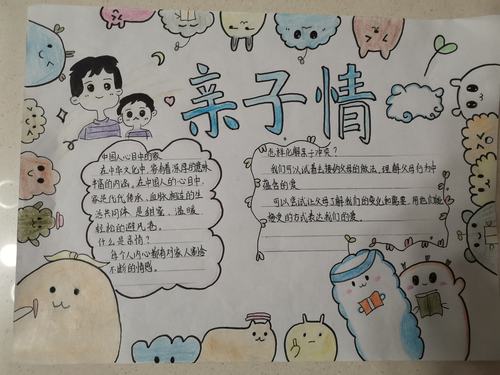 亲子情
中国人心目中的家
在中华文化中,家有着深厚的意味
丰富的内涵。在中国人的心目中,
家是代代传承、血脉相连的生
活共同体 是甜蜜、温暖
轻松的避风港。
什么是亲情?
每个人内心都有对家人割舍
不断的情感。
怎样化解亲子冲突?
我们可以试着去接纳父母的做法,理解父母行为中
蕴含的爱
可以尝试让父母了解我们的变化和需要,用他们能
接受的方式表达我们的爱。